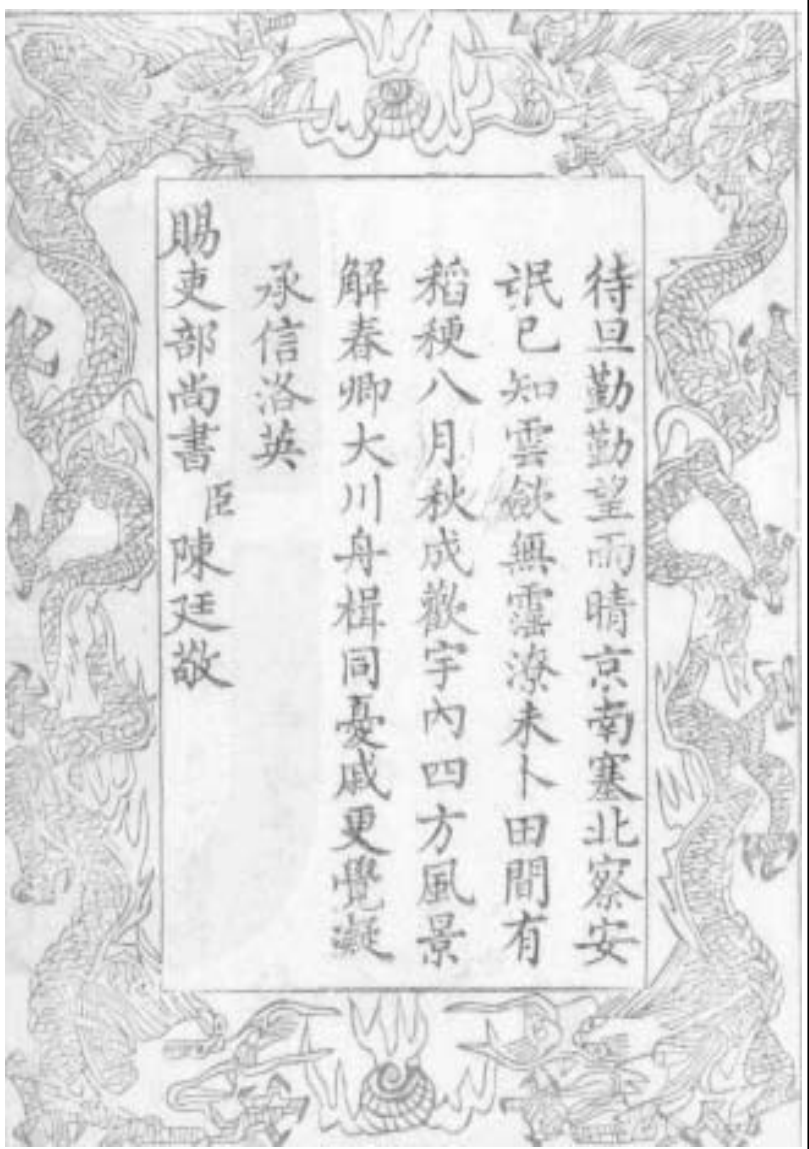 待旦勤勤望雨晴京南塞北察安
氓已知雲歛無霪潦未卜田間有
稻稉八月秋成歡宇內四方風景
解春卿大川舟楫同憂戚更覺凝
承信洛英
賜吏部尚書臣陳廷敬